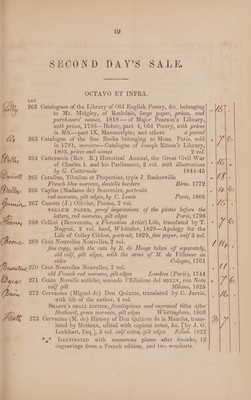 19
SECOND DAY'S SALE.
OCTAVO ET INFRA.
LOT
262 Catalogues of the Library of Old English Poetry, &c. belonging
to Mr. Midgley, of Rochdale, large paper, prices, and
purchasers' names, 1818—of Major Pearson's Library,
with prices, 1788—Heber, part 4, Old Poetry, with prices
in MS.—part IX, Manuscripts; and others a parcel
263 Catalogues of the fine Books belonging to Mons. Paris, sold
in 1791, morocco—Catalogue of Joseph Ritson's Library,
1803, prices and names 2 vol.
264 Cattermole (Rev. R.) Historical Annual, the Great Civil War
of Charles I. and his Parliament, 2 vol. with illustrations
by G. Cattermole 1844-45
265 Catullus, Tibullus et Propertius, typis J. Baskerville
French blue morocco, dentelle borders Birm. 1772
266 Caylus (Madame de) Souvenirs, portraits
red morocco, gilt edges, by C. Lewis Paris, 1806
267 Cazotte (J.) Olivier, Poeme, 2 vol.
VELLUM PAPER, proof impressions of the plates before the
letters, red morocco, gilt edges Paris, 1798
268 Cellini (Benvenuto, a Florentine Artist) Life, translated by T.
Nugent, 2 vol. hund, Whittaker, 1829—Apology for the
Life of Colley Cibber, portrait, 1829, fine paper, calf 3 vol.
269 Cent Nouvelles Nouvelles, 2 vol.
fine copy, with the cuts by R. de Hooge taken off separately,
old calf, gilt edges, with the arms of M. de Villenave on
sides Cologne, 1701
270 Cent Nouvelles Nouvelles, 2 vol.
old French red morocco, gilt edges Londres (Paris), 1744
271 Cento Novelle antiche, secondo l'Edizione del MDXXV, con Note
calf gilt Milano, 1825
272 Cervantes (Miguel de) Don Quixote, translated by C. Jarvis,
with life of the author, 4 vol.
SHARPE'S SMALL EDITION, frontispieces and engraved titles after
Stothard, green morocco, gilt edges Whittingham, 1809
273 Cervantes (M. de) History of Don Quixote de la Mancha, trans-
lated by Motteux, edited with copious notes, &c. [by J. G.
Lockhart, Esq.], 5 vol. calf extra, gilt edges Edinb. 1822
*** ILLUSTRATED with numerous plates after Smirke, 12
engravings from a French edition, and two woodcuts.